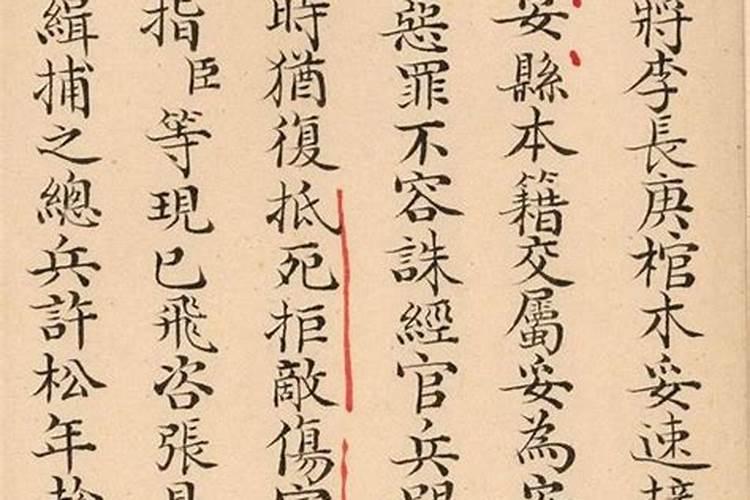 將李長庚棺木妥速
安縣本籍交屬妥為
惡罪不容誅經官兵
時猶復抵死拒敵傷
指臣等現已飛咨張
緝捕之總兵許松年